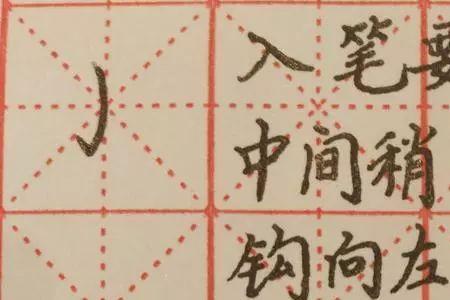 入笔要
中间稍
钩向左